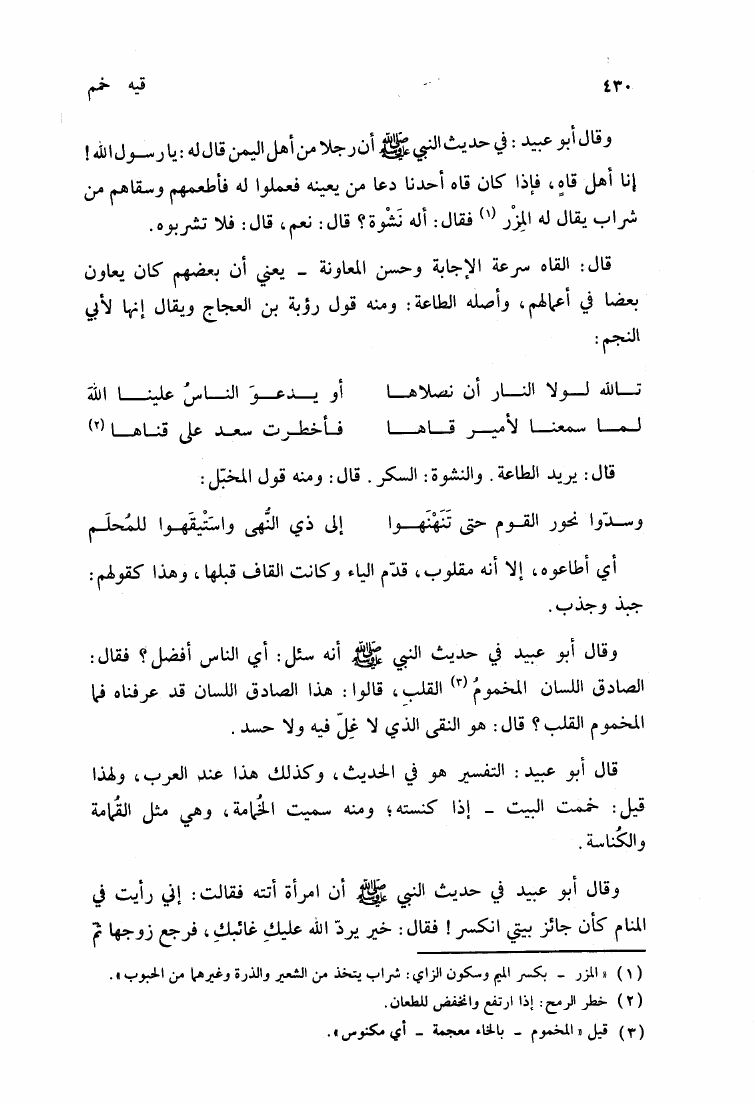 ٤٣٠ قيه خمم
وقال أبو عبيد : في حديث النبي ﷺ أن رجلا من أهل اليمن قال له : يا رسول الله !
إنا أهل قاهٍ، فإذا كان قاه أحدنا دعا من يعينه فعملوا له فأطعمهم وسقاهم من
شراب يقال له المِزْر (١) فقال : أله نَشْوة؟ قال : نعم، قال : فلا تشربوه.
قال : القاه سرعة الإجابة وحسن المعاونة – يعني أن بعضهم كان يعاون
بعضا في أعمالهم، وأصله الطاعة : ومنه قول رؤبة بن العجاج ويقال إنها لأبي
النجم :
تـالله لـولا النـار أن نصلاهـا أو يـدعـوَ النـاسُ علينـا اللهَ
لمـا سمعنـا لأميـر قـاهـا فـأخطـرت سعـد على قنـاهـا (٢)
قال : يريد الطاعة. والنشوة : السكر. قال : ومنه قول المخبّل :
وسـدّوا نحور القـوم حتى تَنَهْنَهـوا إلى ذي النُّهى واستَيْقَهـوا للمُحلّـم
أي أطاعوه، إلا أنه مقلوب، قدّم الياء وكانت القاف قبلها، وهذا كقولهم :
جبذ وجذب.
وقال أبو عبيد في حديث النبي ﷺ أنه سئل : أي الناس أفضل؟ فقال :
الصادق اللسان المخمومُ (٣) القلبِ، قالوا : هذا الصادق اللسان قد عرفناه فما
المخموم القلب؟ قال : هو النقى الذي لا غِلّ فيه ولا حسد.
قال أبو عبيد : التفسير هو في الحديث، وكذلك هذا عند العرب، ولهذا
قيل : خممت البيت – إذا كنسته؛ ومنه سميت الخُمامة، وهي مثل القُمامة
والكُناسة.
وقال أبو عبيد في حديث النبي ﷺ أن امرأة أتته فقالت : إني رأيت في
المنام كأن جائز بيتي انكسر! فقال : خير يردّ الله عليكِ غائبكِ، فرجع زوجها ثم
(١) «المزر – بكسر الميم وسكون الزاي : شراب يتخذ من الشعير والذرة وغيرهما من الحبوب».
(٢) خطر الرمح : إذا ارتفع وانخفض للطعان.
(٣) قيل «المخموم – بالخاء معجمة – أي مكنوس».